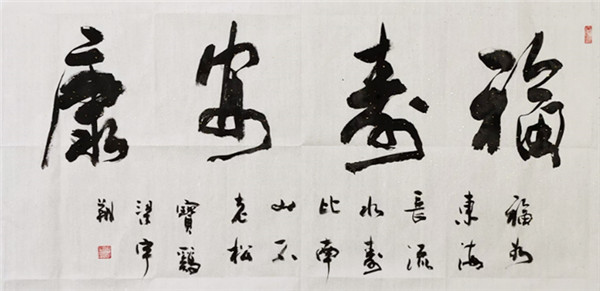 福寿安康
福如
東海
長流
水寿
比南
山不
老松
寶鷄
梁宇
翔